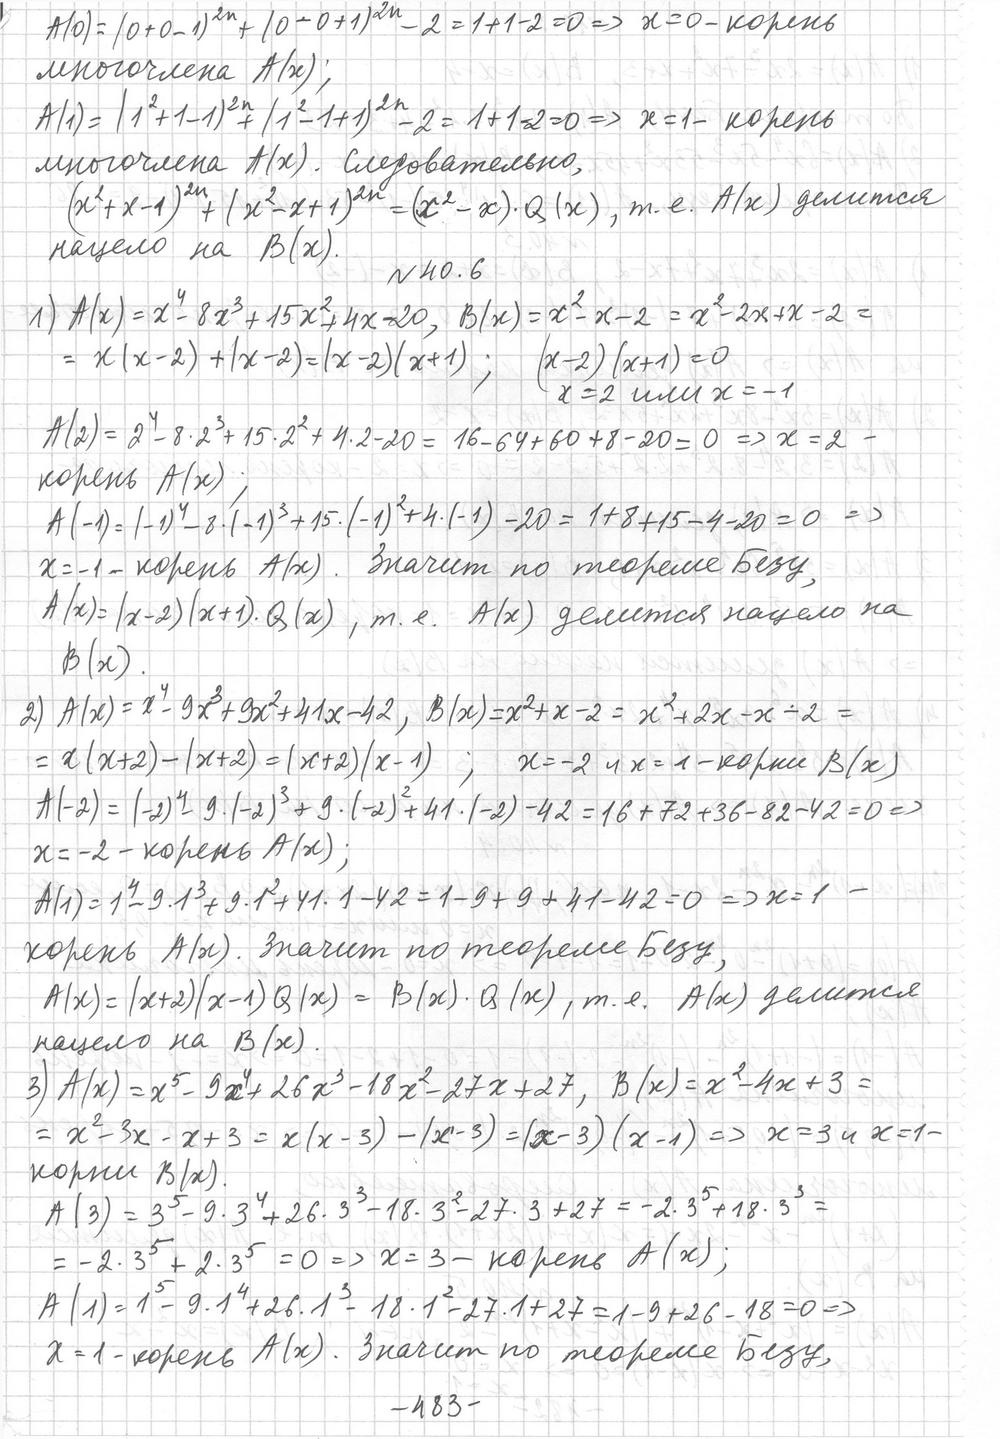 A(0) = (0+0-1)^2n + (0-0+1)^2n - 2 = 1+1-2 = 0 => x=0 - корень
многочлена A(x);
A(1) = (1²+1-1)^2n + (1²-1+1)^2n - 2 = 1+1-2 = 0 => x=1 - корень
многочлена A(x). Следовательно,
(x²+x-1)^2n + (x²-x+1)^2n = (x²-x)·Q(x), т.е. A(x) делится
нацело на B(x).
№40.6
1) A(x) = x⁴-8x³+15x²+4x-20, B(x) = x²-x-2 = x²-2x+x-2 =
= x(x-2)+(x-2) = (x-2)(x+1); (x-2)(x+1)=0
x=2 или x=-1
A(2) = 2⁴-8·2³+15·2²+4·2-20 = 16-64+60+8-20 = 0 => x=2 -
корень A(x);
A(-1) = (-1)⁴-8·(-1)³+15·(-1)²+4·(-1)-20 = 1+8+15-4-20 = 0 =>
x=-1 - корень A(x). Значит по теореме Безу,
A(x) = (x-2)(x+1)·Q(x), т.е. A(x) делится нацело на
B(x).
2) A(x) = x⁴-9x³+9x²+41x-42, B(x) = x²+x-2 = x²+2x-x-2 =
= x(x+2)-(x+2) = (x+2)(x-1); x=-2 и x=1 - корни B(x)
A(-2) = (-2)⁴-9·(-2)³+9·(-2)²+41·(-2)-42 = 16+72+36-82-42 = 0 =>
x=-2 - корень A(x);
A(1) = 1⁴-9·1³+9·1²+41·1-42 = 1-9+9+41-42 = 0 => x=1 -
корень A(x). Значит по теореме Безу,
A(x) = (x+2)(x-1)Q(x) = B(x)·Q(x), т.е. A(x) делится
нацело на B(x).
3) A(x) = x⁵-9x⁴+26x³-18x²-27x+27, B(x) = x²-4x+3 =
= x²-3x-x+3 = x(x-3)-(x-3) = (x-3)(x-1) => x=3 и x=1 -
корни B(x).
A(3) = 3⁵-9·3⁴+26·3³-18·3²-27·3+27 = -2·3⁵+18·3³ =
= -2·3⁵+2·3⁵ = 0 => x=3 - корень A(x);
A(1) = 1⁵-9·1⁴+26·1³-18·1²-27·1+27 = 1-9+26-18 = 0 =>
x=1 - корень A(x). Значит по теореме Безу,
-483-